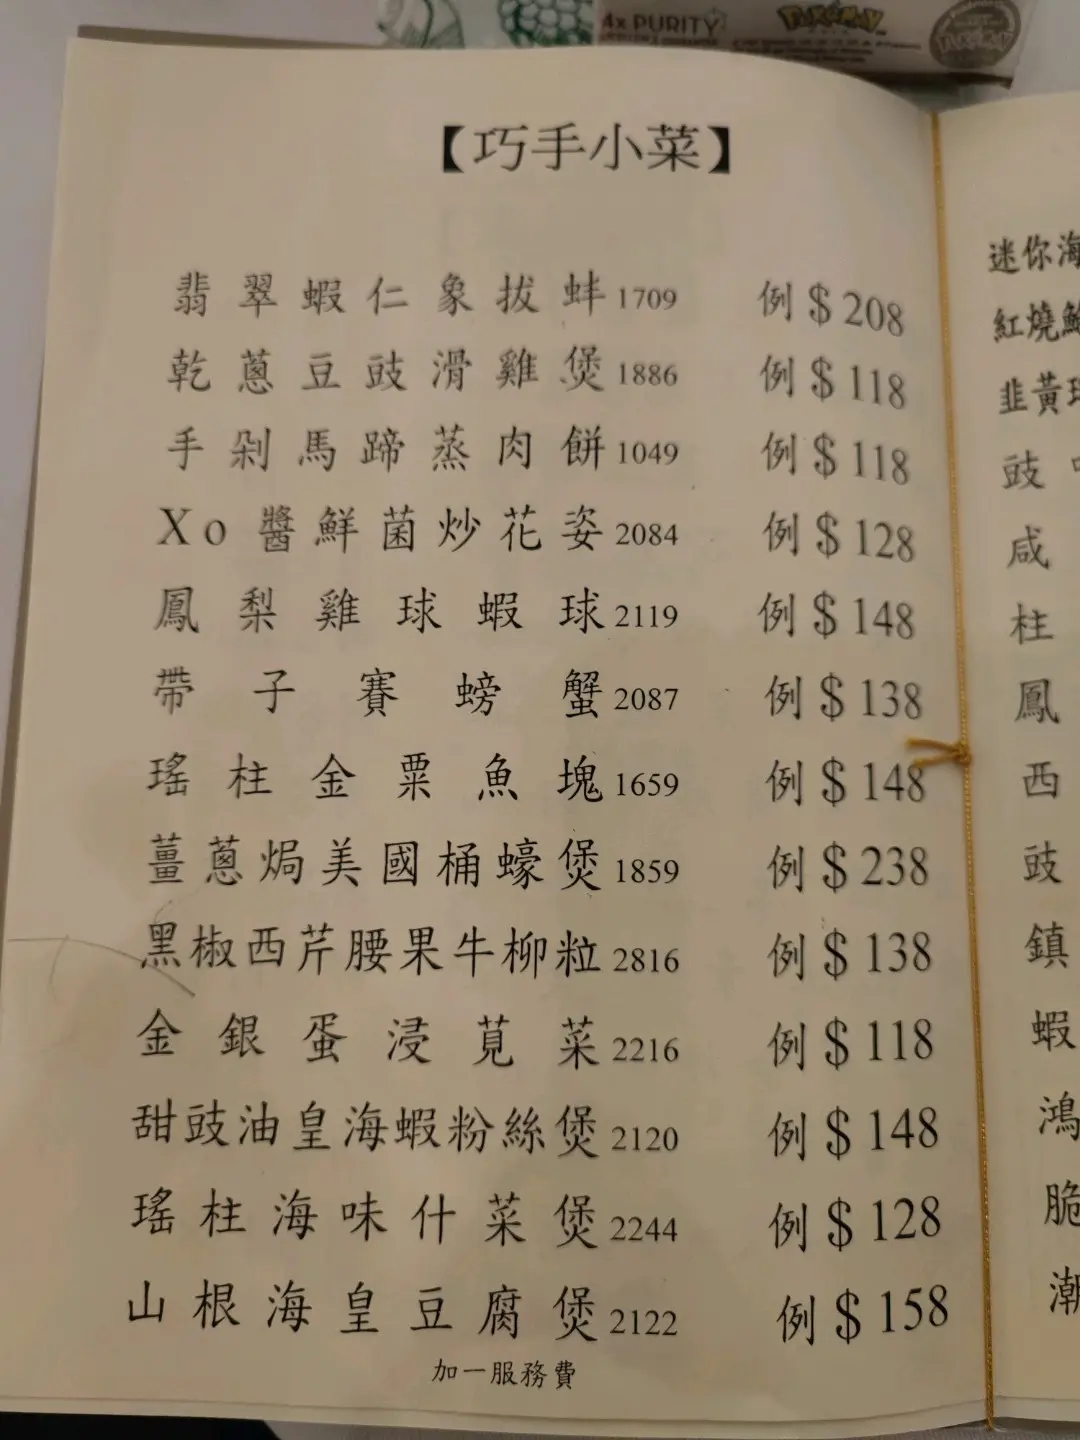 4x PURITY
【巧手小菜】
翡翠蝦仁象拔蚌 1709 例 $ 208
乾蔥豆豉滑雞煲 1886 例 $ 118
手剁馬蹄蒸肉餅 1049 例 $ 118
Xo醬鮮菌炒花姿 2084 例 $ 128
鳳梨雞球蝦球 2119 例 $ 148
帶子賽螃蟹 2087 例 $ 138
瑤柱金粟魚塊 1659 例 $ 148
薑蔥焗美國桶蠔煲 1859 例 $ 238
黑椒西芹腰果牛柳粒 2816 例 $ 138
金銀蛋浸莧菜 2216 例 $ 118
甜豉油皇海蝦粉絲煲 2120 例 $ 148
瑤柱海味什菜煲 2244 例 $ 128
山根海皇豆腐煲 2122 例 $ 158
加一服務費
迷你海
紅燒鮑
韭黃
豉
咸
柱
鳳
西
豉
鎮
蝦
鴻
脆
潮